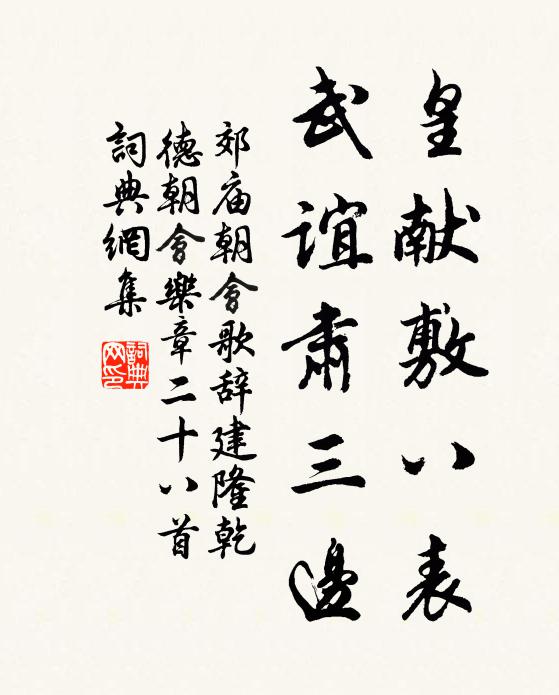 皇献敷八表
武谊肃三邊
郊庙朝會歌辞建隆乾
德朝會樂章二十八首
詞典網集
詞典网印